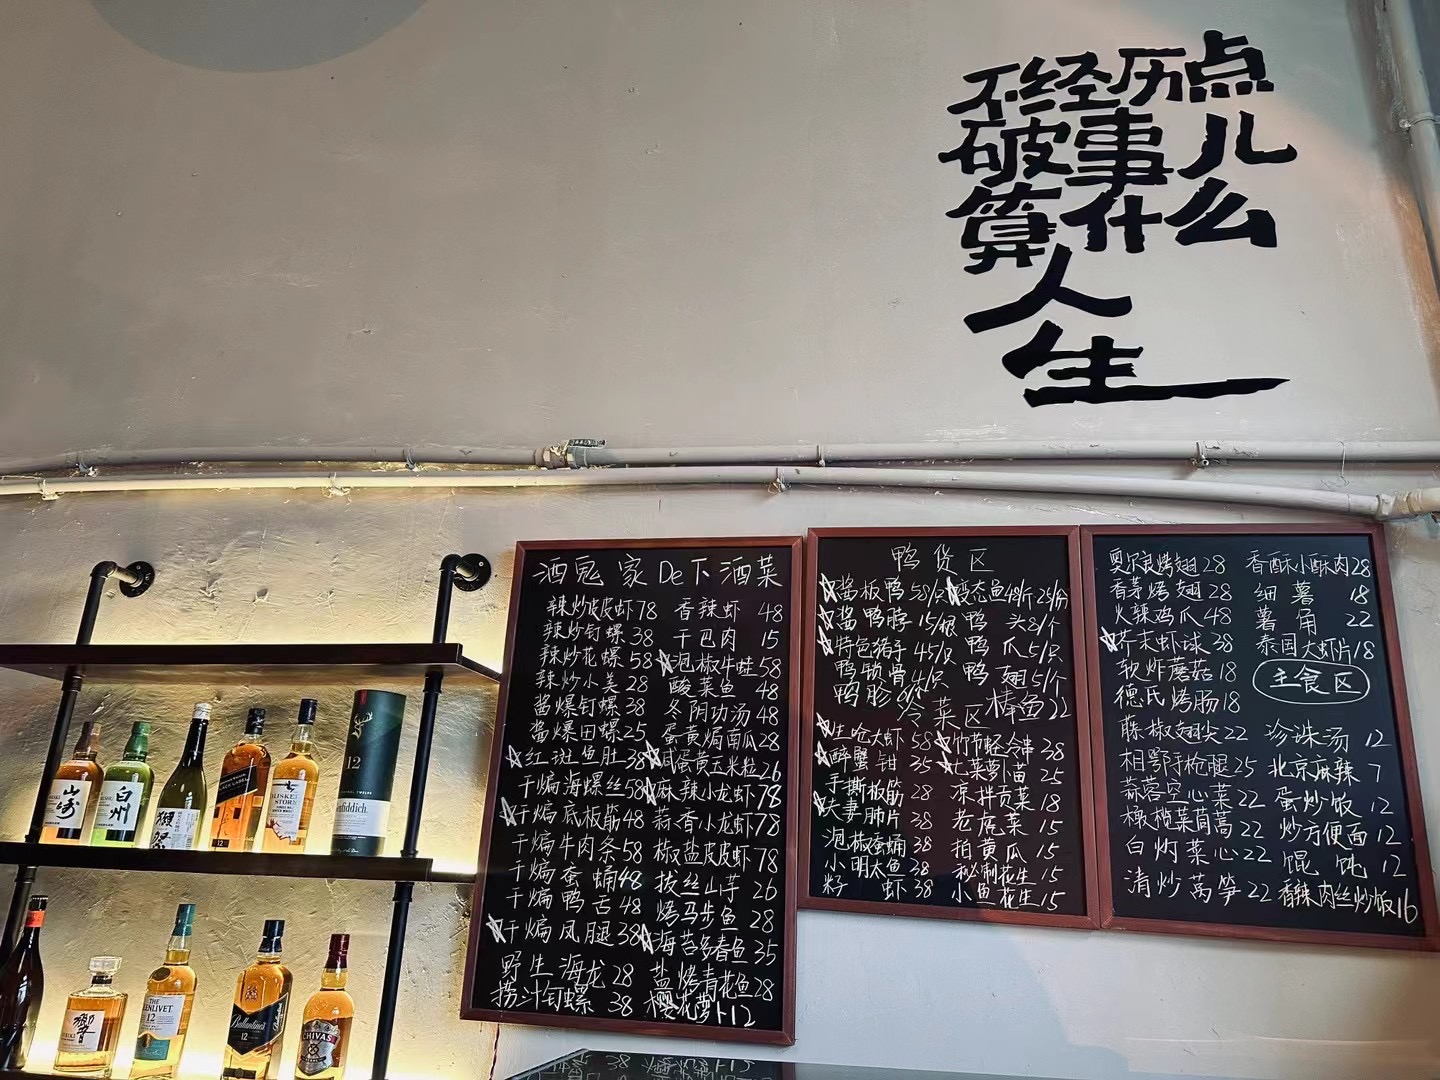 不经历点
破事儿
算什么
人
生
酒鬼家De下酒菜
辣炒皮皮虾78 香辣虾 48
辣炒钉螺38 干巴肉 15
辣炒花螺58 ☆泡椒牛蛙58
辣炒小美28 酸菜鱼 48
酱爆钉螺38 冬阴功汤48
酱爆田螺25 蛋黄焗南瓜28
☆红斑鱼肚38 ☆咸蛋黄玉米粒26
干煸海螺丝58 ☆麻辣小龙虾78
☆干煸底板筋48 蒜香小龙虾78
干煸牛肉条58 椒盐皮皮虾78
干煸蚕蛹48 拔丝山芋26
干煸鸭舌48 烤马步鱼28
☆干煸凤腿38 ☆海苔多春鱼35
野生海龙28 盐烤青花鱼28
捞汁钉螺 38 樱花萝卜12
鸭货区
☆酱板鸭58/只 ☆变态鱼48/个25/份
☆酱鸭脖15/根 鸭头8/个
☆特色猪手45/只 鸭爪5/只
鸭锁骨4/只 鸭翅5/个
鸭胗6/个 棒鱼22
冷菜区
☆生呛大虾58 ☆竹节蛏冷串38
☆醉蟹钳35 ☆七菜萝卜苗25
手撕板筋28 凉拌贡菜18
☆夫妻肺片38 老虎菜15
泡椒蚕蛹38 拍黄瓜15
小明太鱼38 秘制花生15
籽虾38 小鱼花生15
奥尔良烤翅28 香酥小酥肉28
香茅烤翅28 细薯18
火辣鸡爪48 薯角22
☆芥末虾球38 泰国大虾片18
软炸蘑菇18
主食区
德氏烤肠18
藤椒翅尖22 珍珠汤12
相鄂手枪腿25 北京麻辣7
蒜蓉空心菜22 蛋炒饭12
橄榄菜茼蒿22 炒方便面12
白灼菜心22 馄饨12
清炒莴笋22 香辣肉丝炒饭16
山崎
白州
獭祭
12
WHISKEY
STORM
12
Glenfiddich
響
THE
GLENLIVET
12
Ballantine's
12
CHIVAS